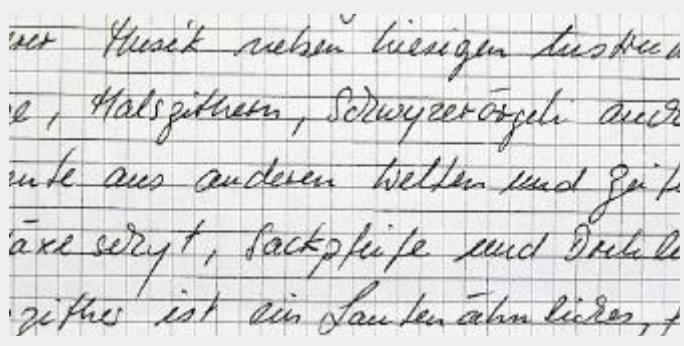 rer Musik neben hiesigen Instru
e, Halszithern, Schwyzerörgeli auch
ente aus anderen Welten und Zeit
äxeschyt, Sackpfeife und Drehle
zither ist ein Lautenähnliches,